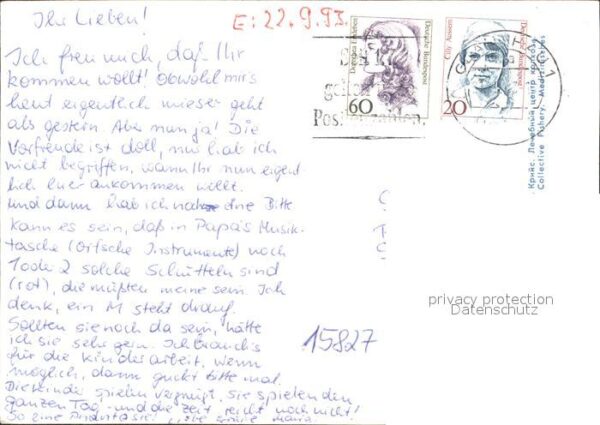 Ihr Lieben!
E: 22.9.93
Ich freu mich, daß Ihr
kommen wollt! Obwohl mir's
heut eigentlich mieser geht
als gestern. Aber nun ja! Die
Vorfreude ist doll, nur hab ich
nicht begriffen, wann Ihr nun eigent-
lich hier ankommen wollt.
Und dann hab ich noch ne Bitte
kann es sein, daß in Papa's Musik-
tasche (Orff'sche Instrumente) noch
1 oder 2 solche Schütteln sind
(rot), die müßten meine sein. Ich
denk, ein M steht drauf.
Sollten sie noch da sein, hätte
ich sie sehr gern. Ich brauch's
für die Kinderarbeit, wenn
möglich, dann guckt bitte mal.
Die Kinder spielen vergnügt, sie spielen den
ganzen Tag und die Zeit reicht noch nicht!
So eine Phantasie!
Dorothea Erxleben
Deutsche Bundespost
60
Cilly Aussem
Deutsche Bundespost
20
Крийс. Лечебный центр колхоза
Collective Fishery Medic
15827
privacy protection
Datenschutz